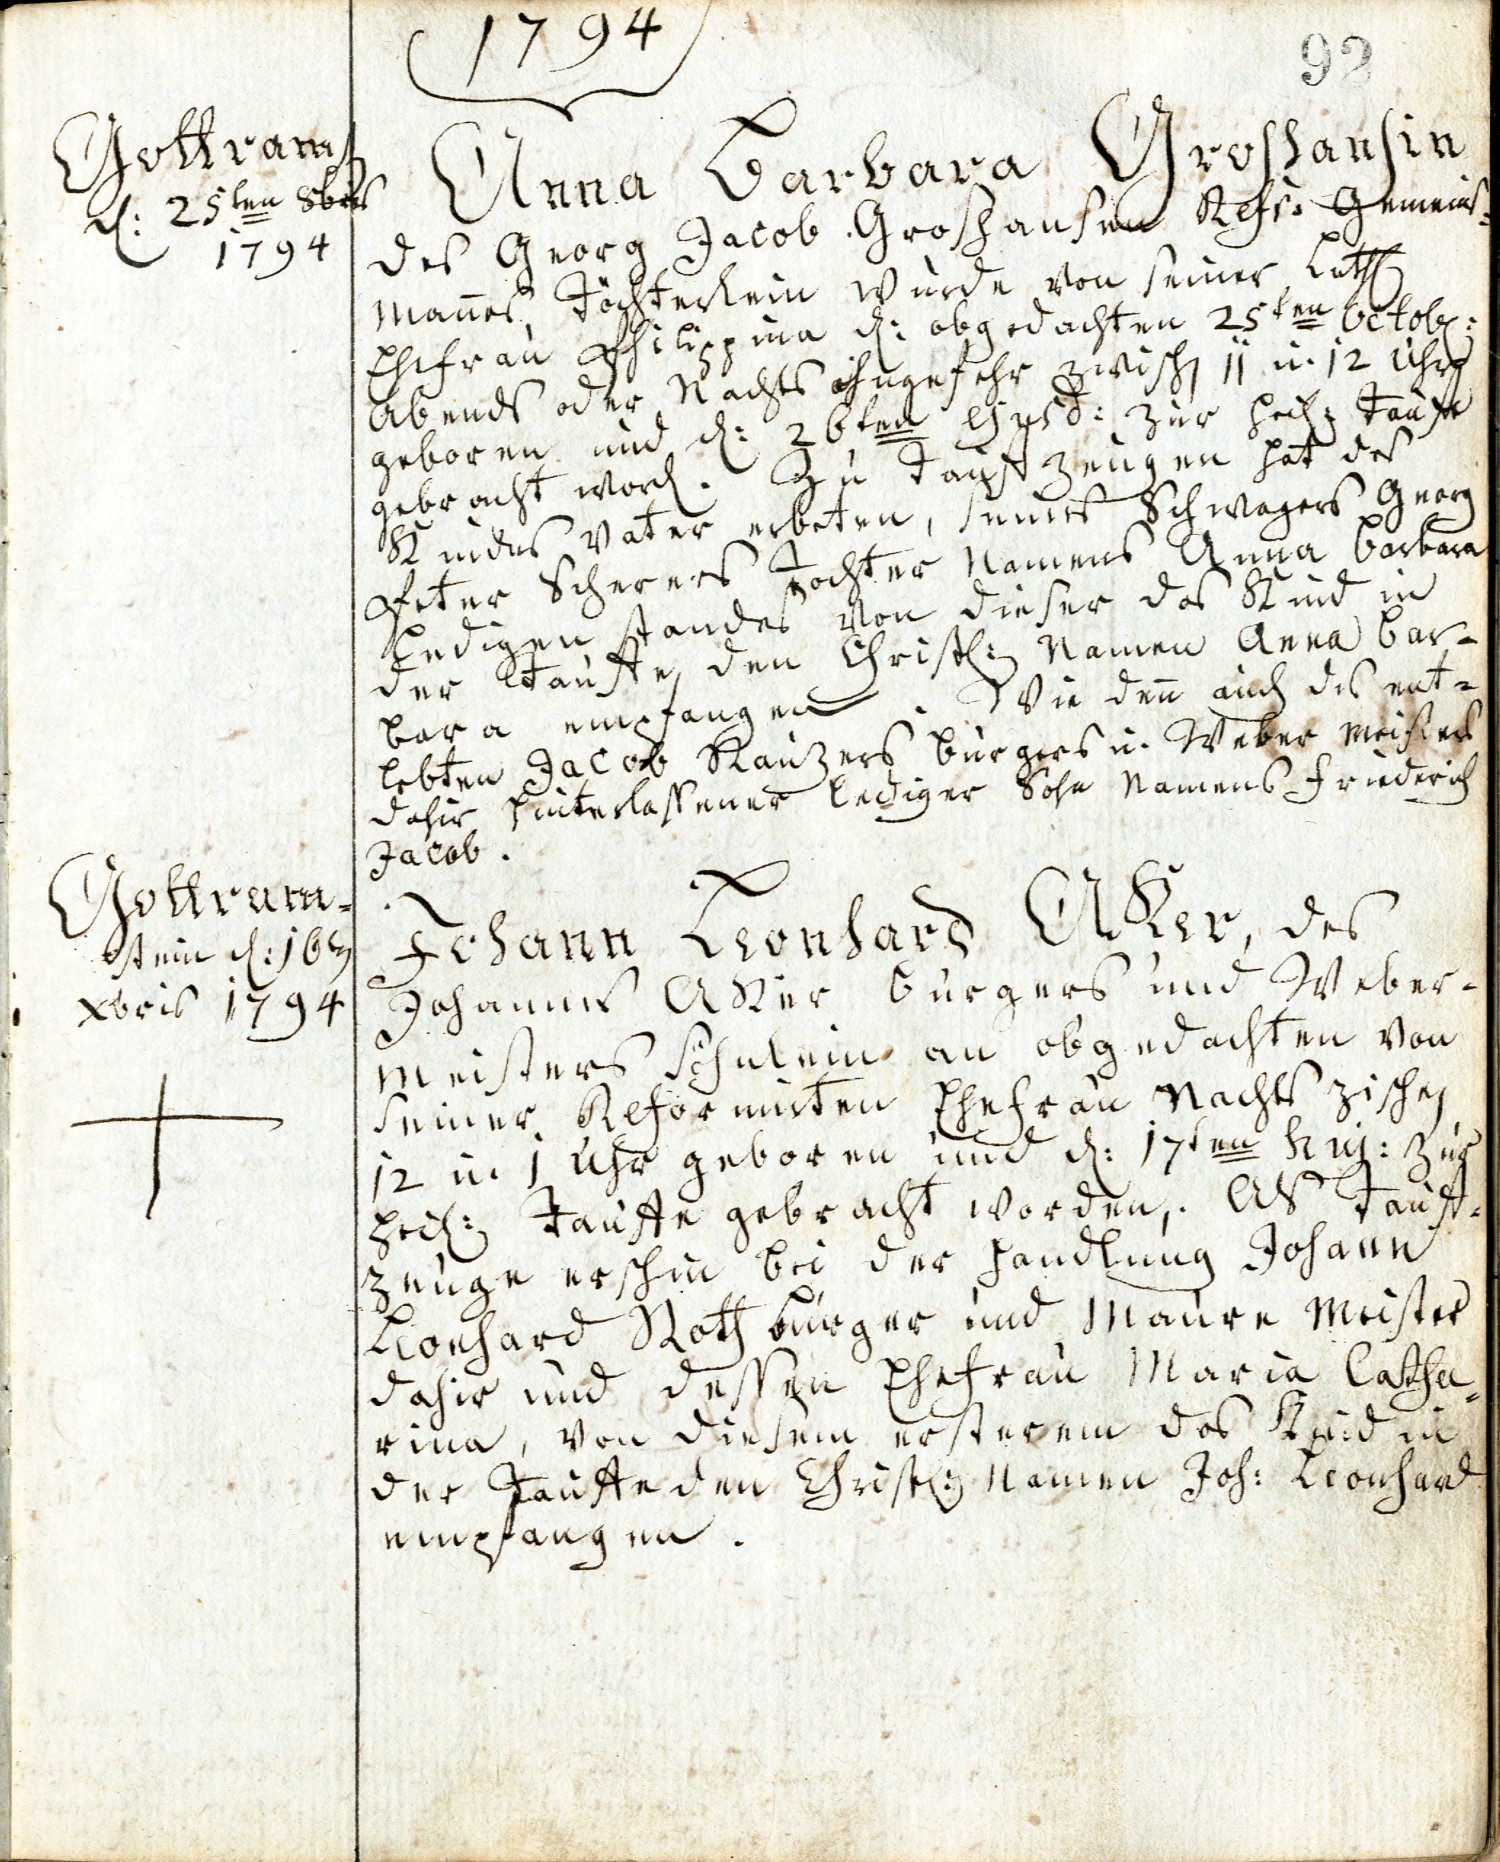 1794
92
Gottram
d: 25ten 8bris
1794
Anna Barbara Groshansin
des Georg Jacob Groshansen Refr. Gemeins-
mañes, Töchterlein wurde von seiner Luth
Ehefrau Philippina d: obgedachten 25ten Octobr:
Abends oder Nachts ohngefehr zwisch 11 u. 12 Uhr
geboren und d: 26ten zur heil: Tauffe
gebracht word. Zu Taufzeugen hat des
Kindes Vater erbeten, seines Schwagers Georg
Peter Scherers Tochter Namens Anna Barbara
Ledigen standes von dieser das Kind in
der Tauffe den Christl: Namen Anna Bar-
bara empfangen. Wie deñ auch des ent-
lebten Jacob Kauzers burgers u. Weber Meisters
dahir hinterlassener lediger Sohn Namens Friederich
Jacob.
Gottram-
stein d: 16ten
xbris 1794
Johann Leonhard Aker, des
Johannes Aker burgers und Weber-
Meisters söhnlein an obgedachten von
seiner Reformirten Ehefrau Nachts zischen
12 u. 1 Uhr geboren und d: 17ten huj: zur
heil: Tauffe gebracht worden. Als Tauf-
zeuge erschin bei der Handlung Johann
Leonhard Roth burger und Maurer Meister
dahir und dessen Ehefrau Maria Catha-
rina, von diesem ersterem das Kind in
der Tauffe den Christl: Namen Joh: Leonhard
empfangen.